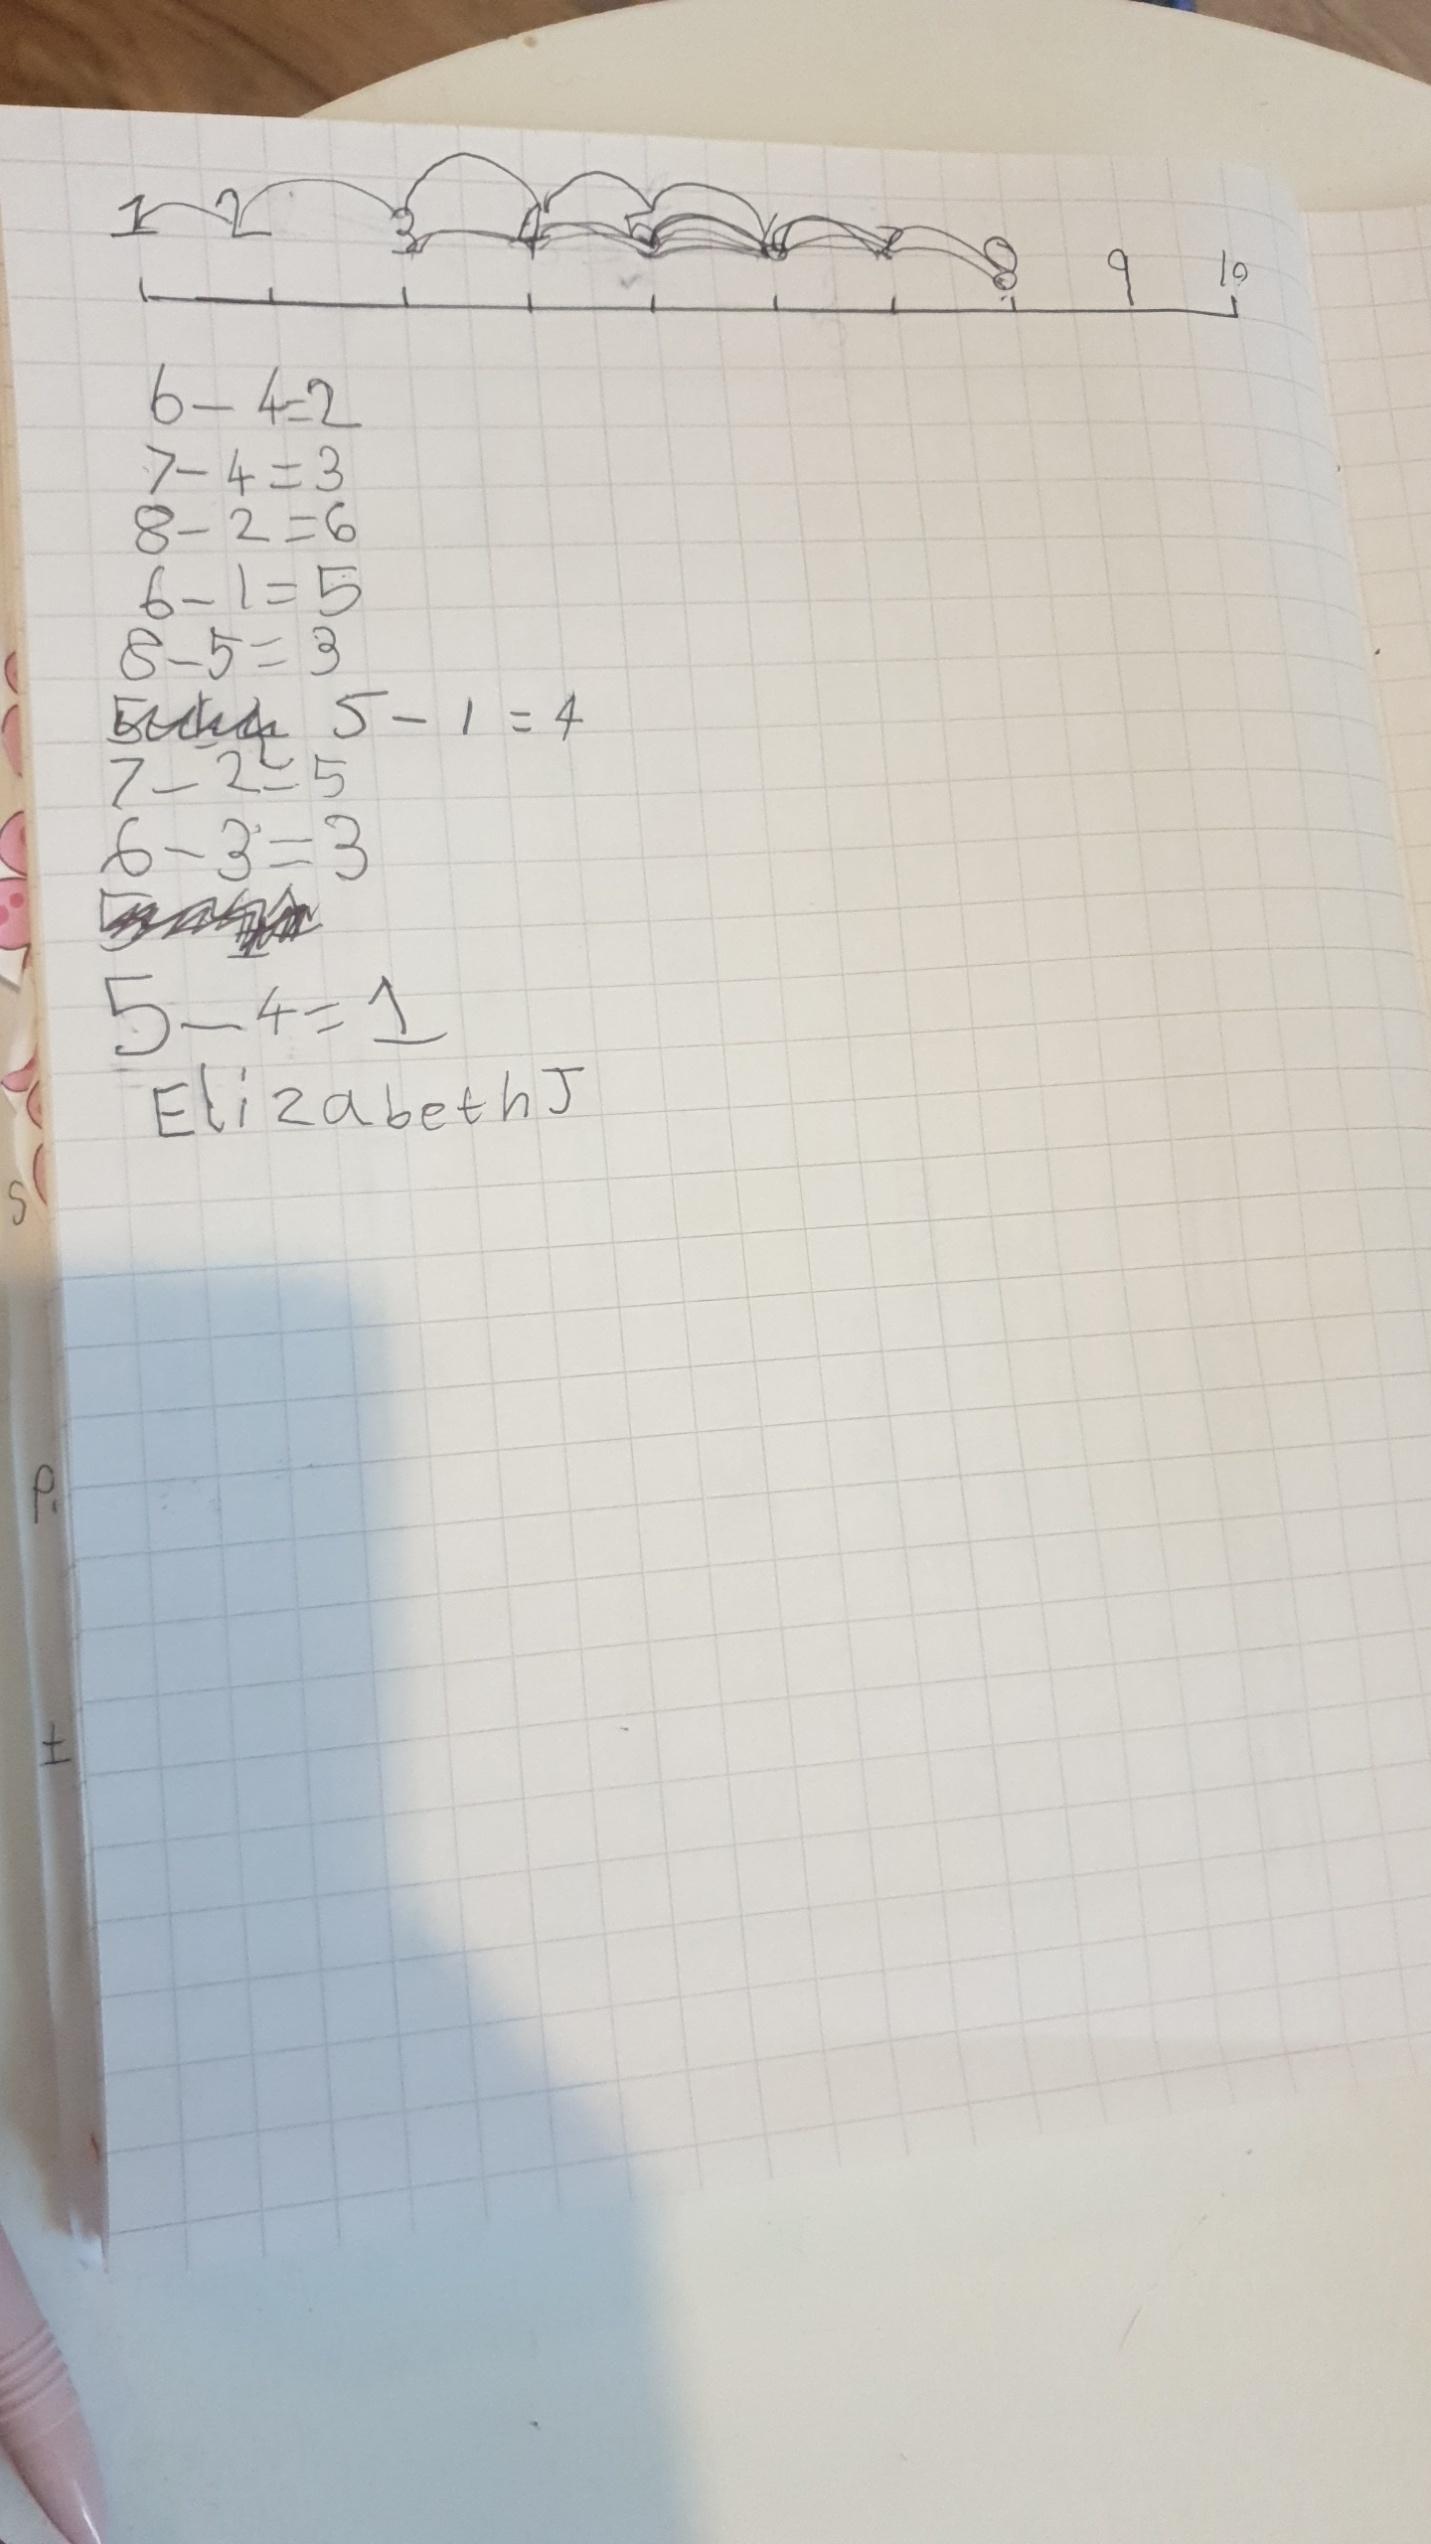 1 2 3 4 5 6 7 8 9 10
6 - 4 = 2
7 - 4 = 3
8 - 2 = 6
6 - 1 = 5
8 - 5 = 3
5 - 1 = 4
7 - 2 = 5
6 - 3 = 3
5 - 4 = 1
Elizabeth J